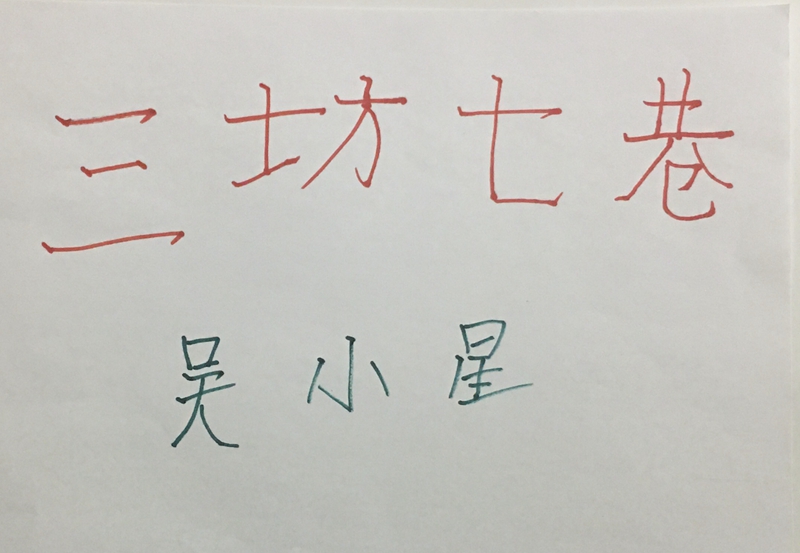 三坊七巷
吴小星